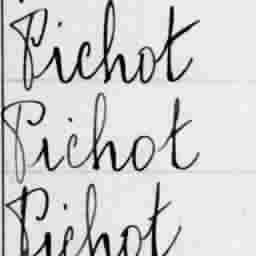 Pichot
Pichot
Pichot